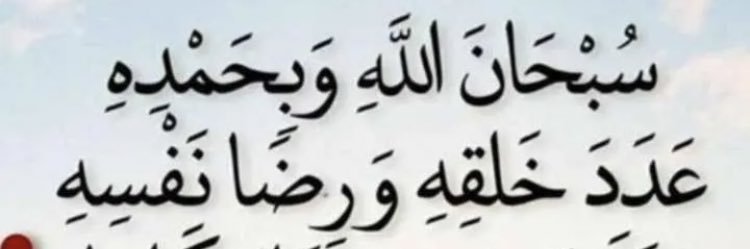 سُبْحَانَ اللَّهِ وَبِحَمْدِهِ
عَدَدَ خَلقِهِ وَرِضًا نَفْسِهِ